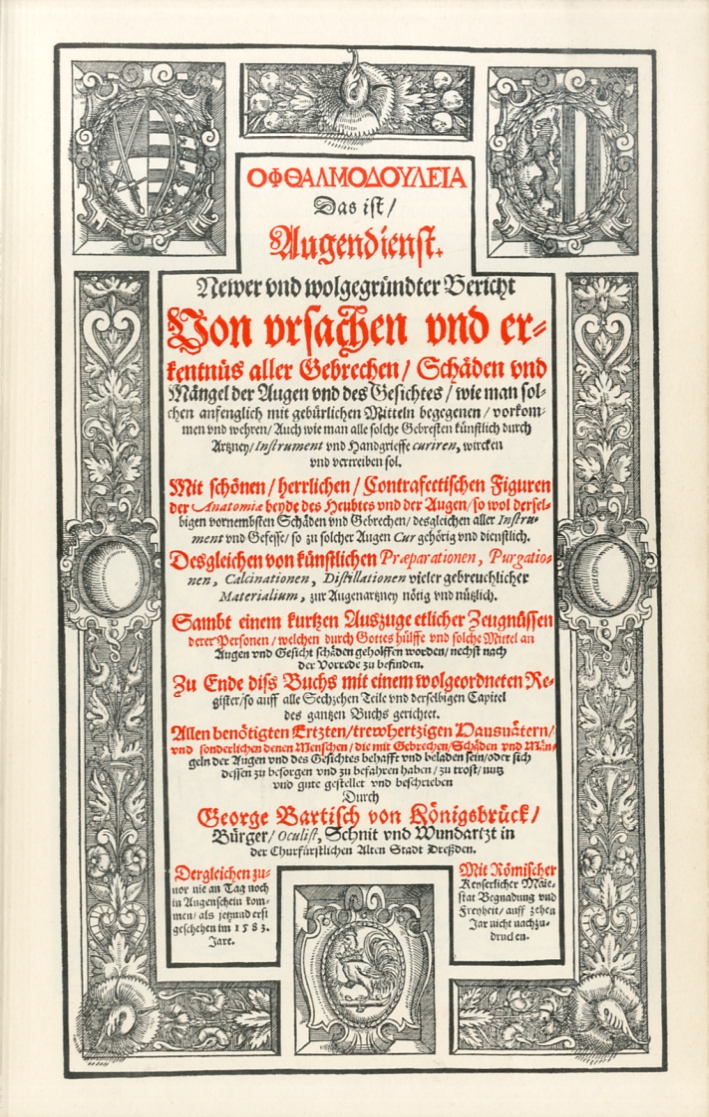 ΟΦΘΑΛΜΟΔΟΥΛΕΙΑ
Das ist/
Augendienst.
Newer vnd wolgegründter Bericht
Von vrsachen vnd er-
kentnüs aller Gebrechen/ Schäden vnd
Mängel der Augen vnd des Gesichtes/ wie man sol-
chen anfenglich mit gebürlichen Mitteln begegenen/ vorkom-
men vnd wehren/ Auch wie man alle solche Gebresten künstlich durch
Artzney/ Instrument vnd Handgrieffe curiren, wircken
vnd vertreiben sol.
Mit schönen/ herrlichen/ Contrafectischen Figuren
der Anatomiæ beyde des Heubtes vnd der Augen/ so wol dersel-
bigen vornembsten Schäden vnd Gebrechen/ desgleichen aller Instru-
ment vnd Gefesse/ so zu solcher Augen Cur gehörig vnd dienstlich.
Desgleichen von künstlichen Præparationen, Purgatio-
nen, Calcinationen, Distillationen vieler gebreuchlicher
Materialium, zur Augenartzney nötig vnd nützlich.
Sambt einem kurtzen Auszuge etlicher Zeugnüssen
derer Personen/ welchen durch Gottes hülffe vnd solche Mittel an
Augen vnd Gesicht schäden geholffen worden/ nechst nach
der Vorrede zu befinden.
Zu Ende diss Buchs mit einem wolgeordneten Re-
gister/ so auff alle Sechzehen Teile vnd derselbigen Capitel
des gantzen Buchs gerichtet.
Allen benötigten Ertzten/ trewhertzigen Hausuätern/
vnd sonderlichen denen Menschen/ die mit Gebrechen/ Schäden vnd Män-
geln der Augen vnd des Gesichtes behafft vnd beladen sein/ oder sich
dessen zu besorgen vnd zu befahren haben/ zu trost/ nutz
vnd gute gestellet vnd beschrieben
Durch
George Bartisch von Königsbrück/
Bürger/ Oculist, Schnit vnd Wundartzt in
der Churfürstlichen Alten Stadt Dreßden.
Dergleichen zu-
uor nie an Tag noch
in Augenschein kom-
men/ als jetzund erst
geschehen im 1583.
Jare.
Mit Römischer
Keyserlicher Maie-
stat Begnadung vnd
Freyheit/ auff zehen
Jar nicht nachzu-
drucken.